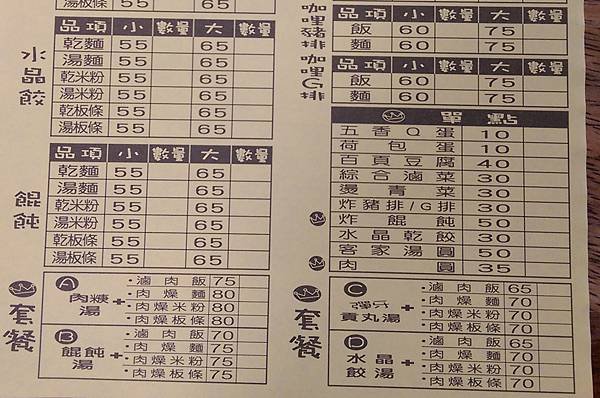 湯板條 55 65
水晶餃
乾麵 55 65
湯麵 55 65
乾米粉 55 65
湯米粉 55 65
乾板條 55 65
湯板條 55 65
餛飩
品項 小 數量 大 數量
乾麵 55 65
湯麵 55 65
乾米粉 55 65
湯米粉 55 65
乾板條 55 65
湯板條 55 65
套餐
A 肉焿湯+
·滷肉飯 75
·肉燥麵 80
·肉燥米粉 80
·肉燥板條 80
B 餛飩湯+
·滷肉飯 70
·肉燥麵 75
·肉燥米粉 75
·肉燥板條 75
咖哩豬排
品項 小 數量 大 數量
飯 60 75
麵 60 75
咖哩G排
品項 小 數量 大 數量
飯 60 75
麵 60 75
單點
五香Q蛋 10
荷包蛋 10
百頁豆腐 40
綜合滷菜 30
燙青菜 30
炸豬排/G排 30
炸餛飩 50
水晶乾餃 30
客家湯圓 50
肉圓 35
套餐
C 彈牙貢丸湯+
·滷肉飯 65
·肉燥麵 70
·肉燥米粉 70
·肉燥板條 70
D 水晶餃湯+
·滷肉飯 65
·肉燥麵 70
·肉燥米粉 70
·肉燥板條 70